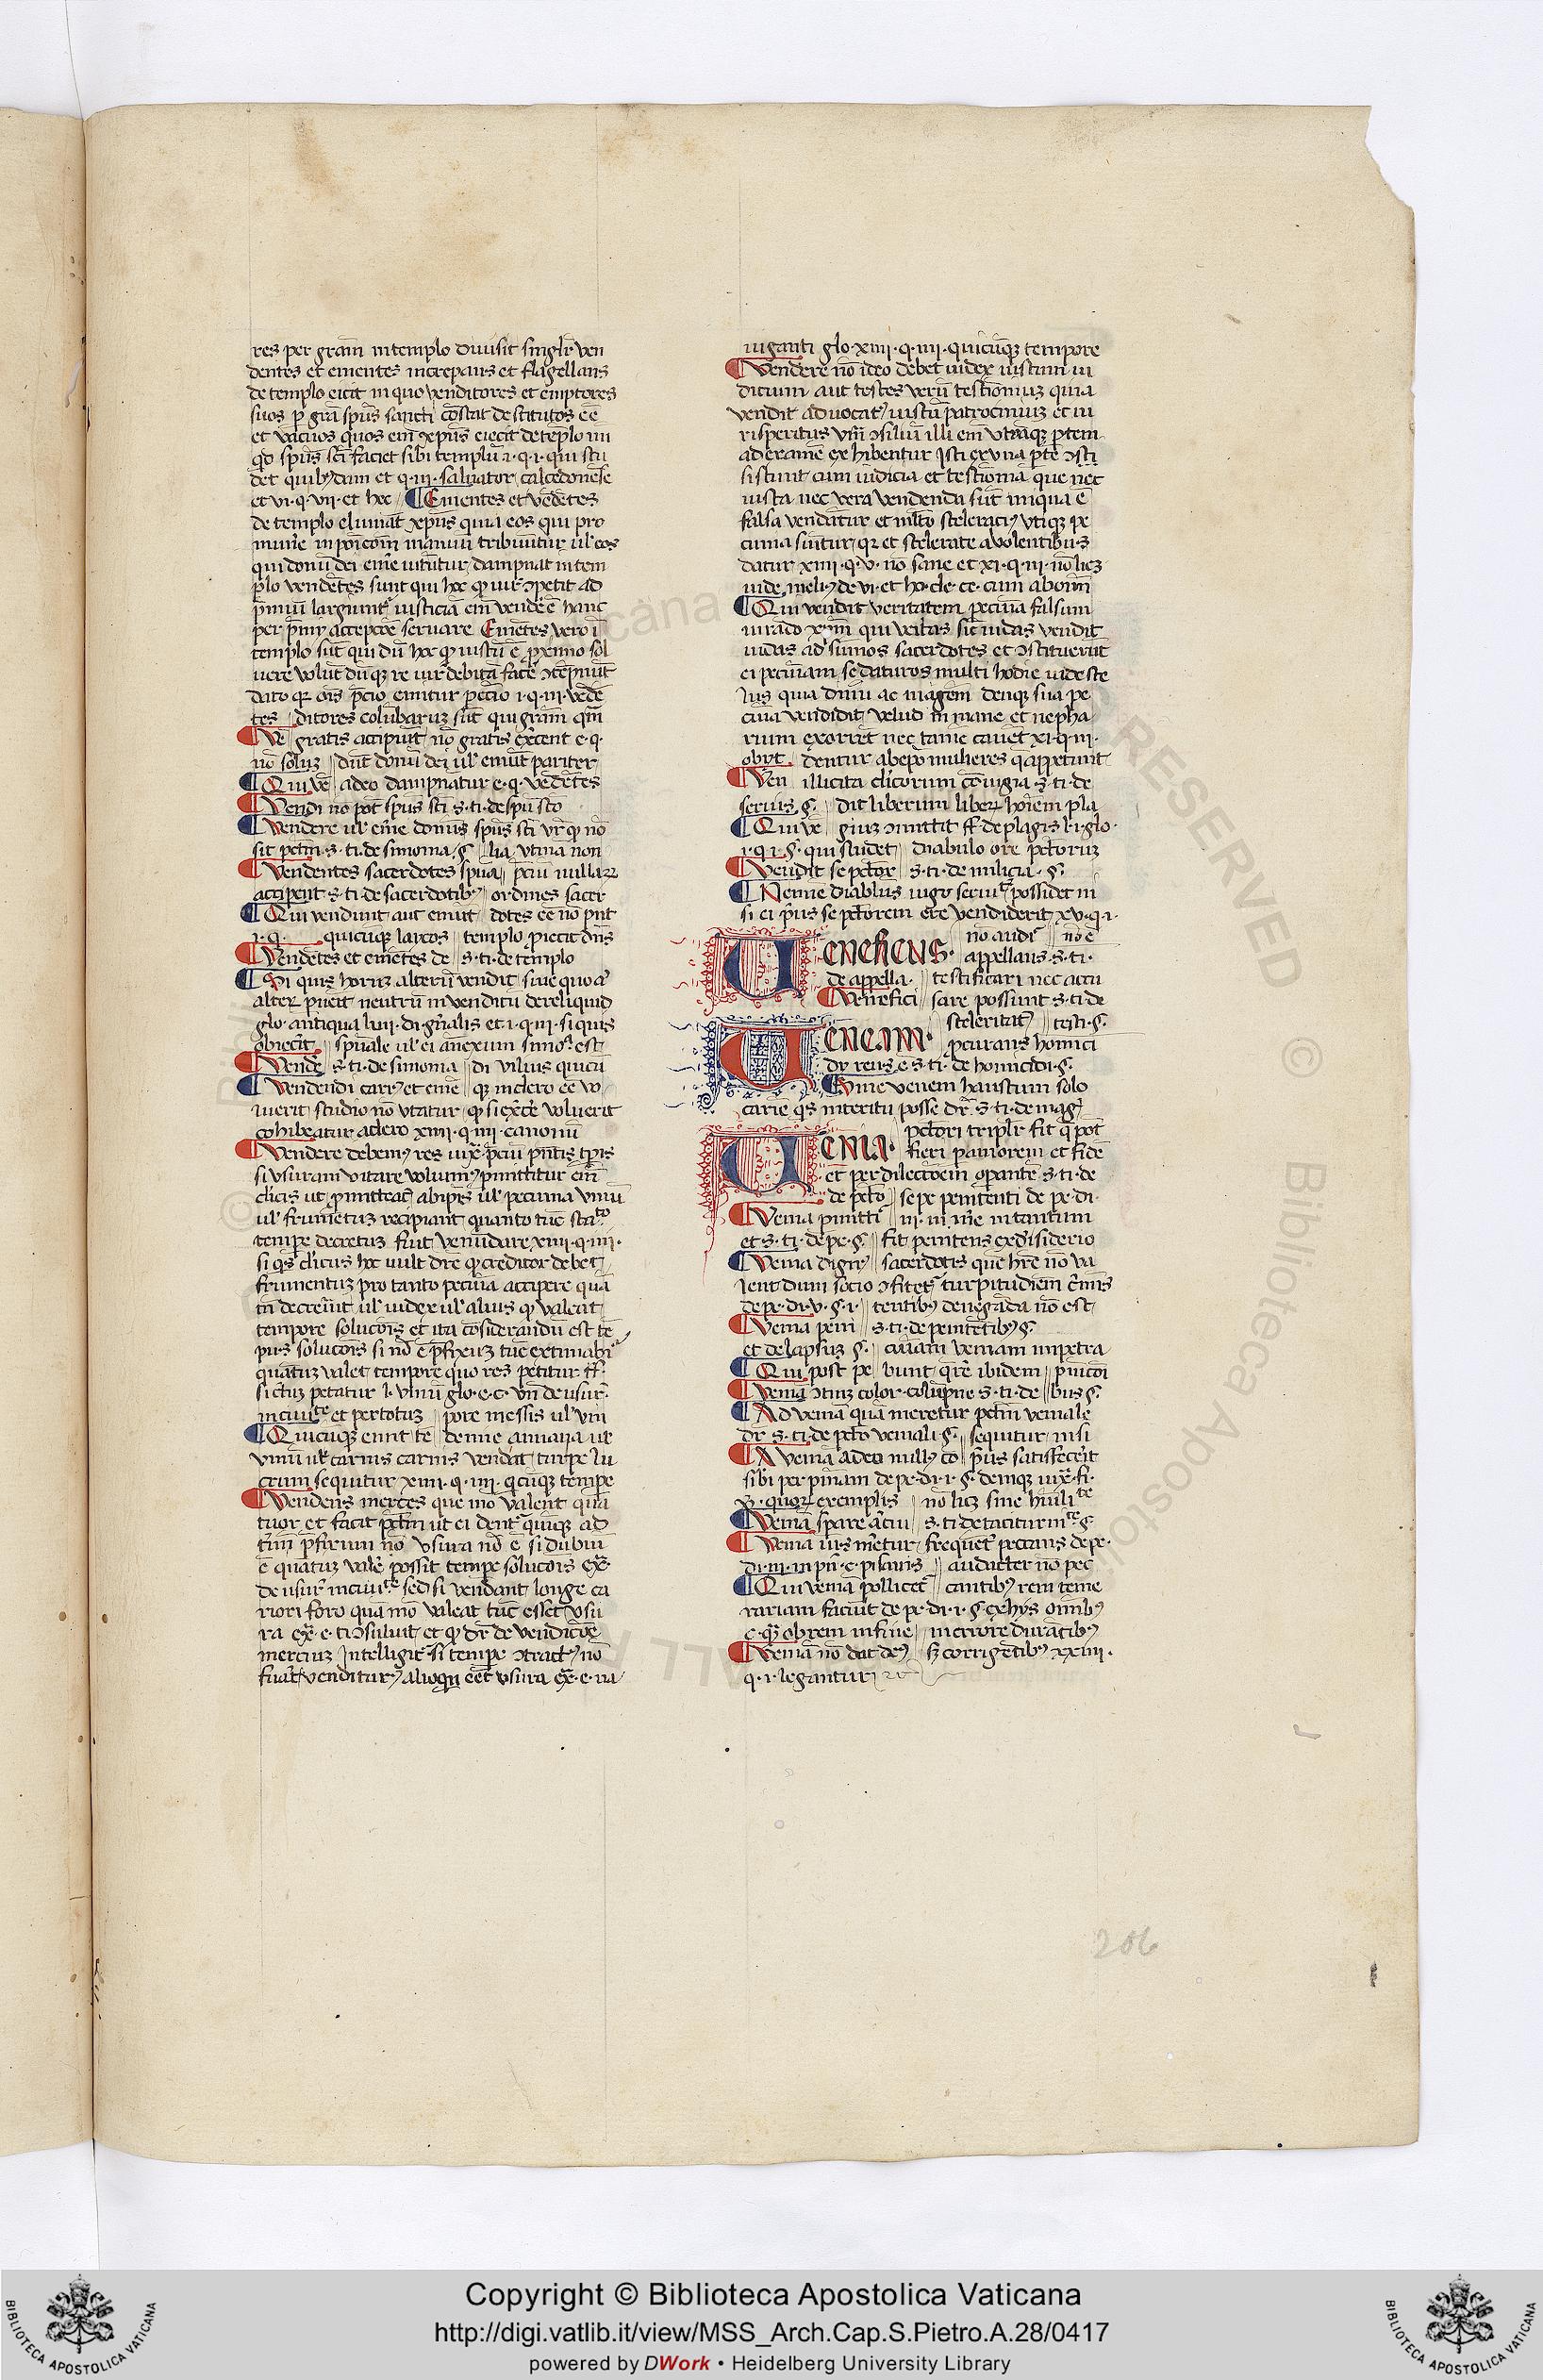 res per grām in templo diuisit singlr̄ ven
dentes et ementes increpans et flagellans
de templo eicit in quo venditores et emptores
suos p grā spūs sancti cōstat destitutos eē
et vacuos quos em̄ xpūs eiecit de tēplo nn
qd spūs scī faciet sibi templū 1. q. 1. qui stu
det quibꝰdam et q. iii. saluator calcedonēse
et vi. q. vii. et hoc ¶ Ementes et vēdētes
de templo elimiāt xpūs quia eos qui pro
mun̄e inpoīcōm manuū tribuūtur ul eos
qui donū dei em̄e nitūtur dampnat in tem
plo vendētes sunt qui hoc qd iur̄ ɔpetit ad
p̄miū largiunt̄ iusticiā em̄ vendē ē hanc
per p̄mij acceptōē seruare Emētes vero ī
templo sūt qui dū hoc qd iustū ē proximo sol
uere volūt dūqꝫ re iur̄ debitā facē ɔtēpnūt
dato qꝫ oīs p̄cio emitur pccīo 1. q. iii. vēdē
tes ditores colūbarꝫ sūt qui grām qm̄
¶ Vē gratis accipiūt nō gratis exercent e. q.
nō solꝫ dūt donū dei ul emūt pariter
¶ Qui vē adeo dampnatur e. q. vēdētes
¶ Vendi nō pōt spūs scī s. ti. de spū scō
¶ Vendere ul em̄e donūs spūs scī vr̄ qd nō
sit petm̄ s. ti. de simonia §. lia vtina non
¶ Vendentes sacerdotes spūa p̄ciū nullaꝝ
accipent s. ti. de sacerdotibꝰ ordines sacer
¶ Qui vendunt aut emūt dotes eē nō pn̄t
1. q. quicūqꝫ larcos templo proiecit dn̄s
¶ Vendētes et emētes de s. ti. de templo
¶ Si quis horꝫ alterū vendit siue quo a
alter prouēit neutrū inuenditū dereliquid
glo. antiqua lviii. di. gn̄alis et 1. q. iii. si quis
obiecit spūale ul ei anexum simo. est
¶ Vende s. ti. de simonia di vilius quicū
¶ Vendendi cariꝰ et em̄e qꝫ in clero eē vo
luerit studio nō vtatur qd si exercē voluerit
cohibeatur a clero xiiii. q. iiii. canonū
¶ Vendere debemꝰ res iuxᵃ p̄ciū pn̄tis tp̄is
si vsuram vitare volumꝰ permittitur em̄
clicis ut promutteāt ab ipīs ul pecunia vinū
ul frumētꝫ recipiant quanto tūc statᵗᵒ
tempe decretꝫ fuit venūdare xiiii. q. iiii.
si qs clicus hoc uult dr̄e qd creditor debet
frumentꝫ pro tanto pecūia accipere quā
tū decreūit ul iudex ul alius qd valeat
tempore solucōis et ita cōsiderandū est tē
pus solucōis si nō ē p̄fixꝫ tūc extimabiᵗ
quātꝫ valet tempore quo res petitur ff.
si ctꝫ petatur l. vinū glo. e. c. vn̄ de usur.
in ciuiᵗᵉ et per totꝫ pore messis ul vin
¶ Quicūqꝫ emit tē demie annana ul
vinū ul carnis carnis vendāt turpe lu
crum sequitur xiiii. q. iiii. qcūqꝫ tempe
¶ Vendens merces que mō valent qua
tuor et facit pctm̄ ut ei dent quiqꝫ ad
tm̄ p̄fixum nō vsura nō ē si dubiū
ē quātꝫ valē possīt tempe solucōis exᵃ
de usur. in ciuiᵗᵉ sed si vendant longe ca
riori foro quā mō valeat tūc esset vsu
ra exᵃ e. ti. ɔsuluit et qd dr̄ de vendicōe
mercꝫ intelligit si tempe ɔtractꝰ nō
fuāt venditurꝰ alioqn eēt vsura exᵃ e. na
uiganti glo. xiiii. q. iiii. quicūqꝫ tempore
¶ Vendere nō ideo debet iudex iustum iu
dicium aut testes verū testīomiꝫ quia
vendit aduocatꝰ iustū patrociniꝫ et iu
risperitus vm̄ ɔsiliū illi em̄ vtrāqꝫ ptem
ad examē exhibentur isti ex vna pte ɔsti
sistunt cum iudicia et testiomā que nec
iusta nec vera vendenda sūt iniqua ē
falsa vendātur et mltō sceleratiꝰ vtiqꝫ pe
cunia sumtur qꝫ et scelerate a volentibꝰ
datur xiiii. q. v. nō sane et xi. q. iii. nō licꝫ
uide meliꝰ de vi. et ho. cle. ce. cum aboim̄
¶ Qui vendit veritatem pecunia falsum
iurādo xpm̄ qui veritas sic iudas vendit
iudas ad sūmos sacerdotes et ɔstituerūt
ei pecuniam se daturos multi hodie iude sce
lus quia dnm̄ ac magr̄m denqꝫ sua pe
cūia vendidit velud in mane et nepha
rium exorret nec tamē cauet xi. q. iii.
abijt dentur ab epō mulieres q appetunt
¶ Ven illicita clicorum cōiugia s. ti. de
seruis §. dit liberum liberꝝ hoīem pla
¶ Qui vē giꝫ ɔmittit ff. de plagis l. 1. glo.
1. q. 1. §. qui studet diabulo ore pctorꝫ
¶ Vendit se pctor s. ti. de milicia. §.
¶ Neminē diablus iugo seruitꝰ possidet ni
si ei prius se pctorem ere vendiderit xv. q. 1.
Veneficus. nō audit nō ē
appellans s. ti.
de appella. testificari nec accu
¶ Venefici sare possunt s. ti. de
sceleritatꝰ testi. §.
Venenum. pcurans homici
dij reus ē s. ti. de homicidi. §.
¶ Sine venem haustum solo
carīe qs interitu posse dr̄ s. ti. de mag
Venia. pctori triplr̄ fit q pōt
fieri p amorem et fidē
et per dilectōem opantē s. ti. de
de pctō sepe penitenti de pe. di.
¶ Venia pmitti iii. iii. ...
et s. ti. de pe. §. fit penitens ex disiderio
¶ Venia dignꝰ sacerdotis quē hr̄e nō va
lent dum socio ɔfitet turpitudiem cīmis
de pe. di. v. §. 1. tentibꝰ denegāda nō est
¶ Venia peni s. ti. de penitētibꝰ §.
et de lapsꝫ §. cūiam veniam impetra
¶ Qui post pe bunt qr̄e ibidem
¶ Veniā ɔtinꝫ color. colūpne s. ti. de bus §.
¶ Ad veniā quā meretur pctm̄ veniale
dr̄ s. ti. de pctō veniali §. sequitur nisi
¶ A veniā adeo nullꝰ cō prius satisfecerit
sibi per pniam de pe. di. 1. §. deniqꝫ iuxᵃ fi.
ꝟ. quoꝝ exemplis nō licꝫ sine humiliᵗᵉ
¶ Veniā sperare s. ti. de taciturniᵗᵉ §.
¶ Venia frequēt peccans de pe.
di. iii. in pn̄. c. pilaris audacter nō pec
¶ Qui veniā pollicet cantibꝰ rem teme
rariam faciūt de pe. di. 1. §. ex hijs omībꝰ
c. qd obrem in fine in errore durātibꝰ
¶ Veniā nō dat deꝰ sꝫ corrigētibꝰ xxiiii.
q. 1. legantur
206
Copyright © Biblioteca Apostolica Vaticana
http://digi.vatlib.it/view/MSS_Arch.Cap.S.Pietro.A.28/0417
powered by DWork • Heidelberg University Library